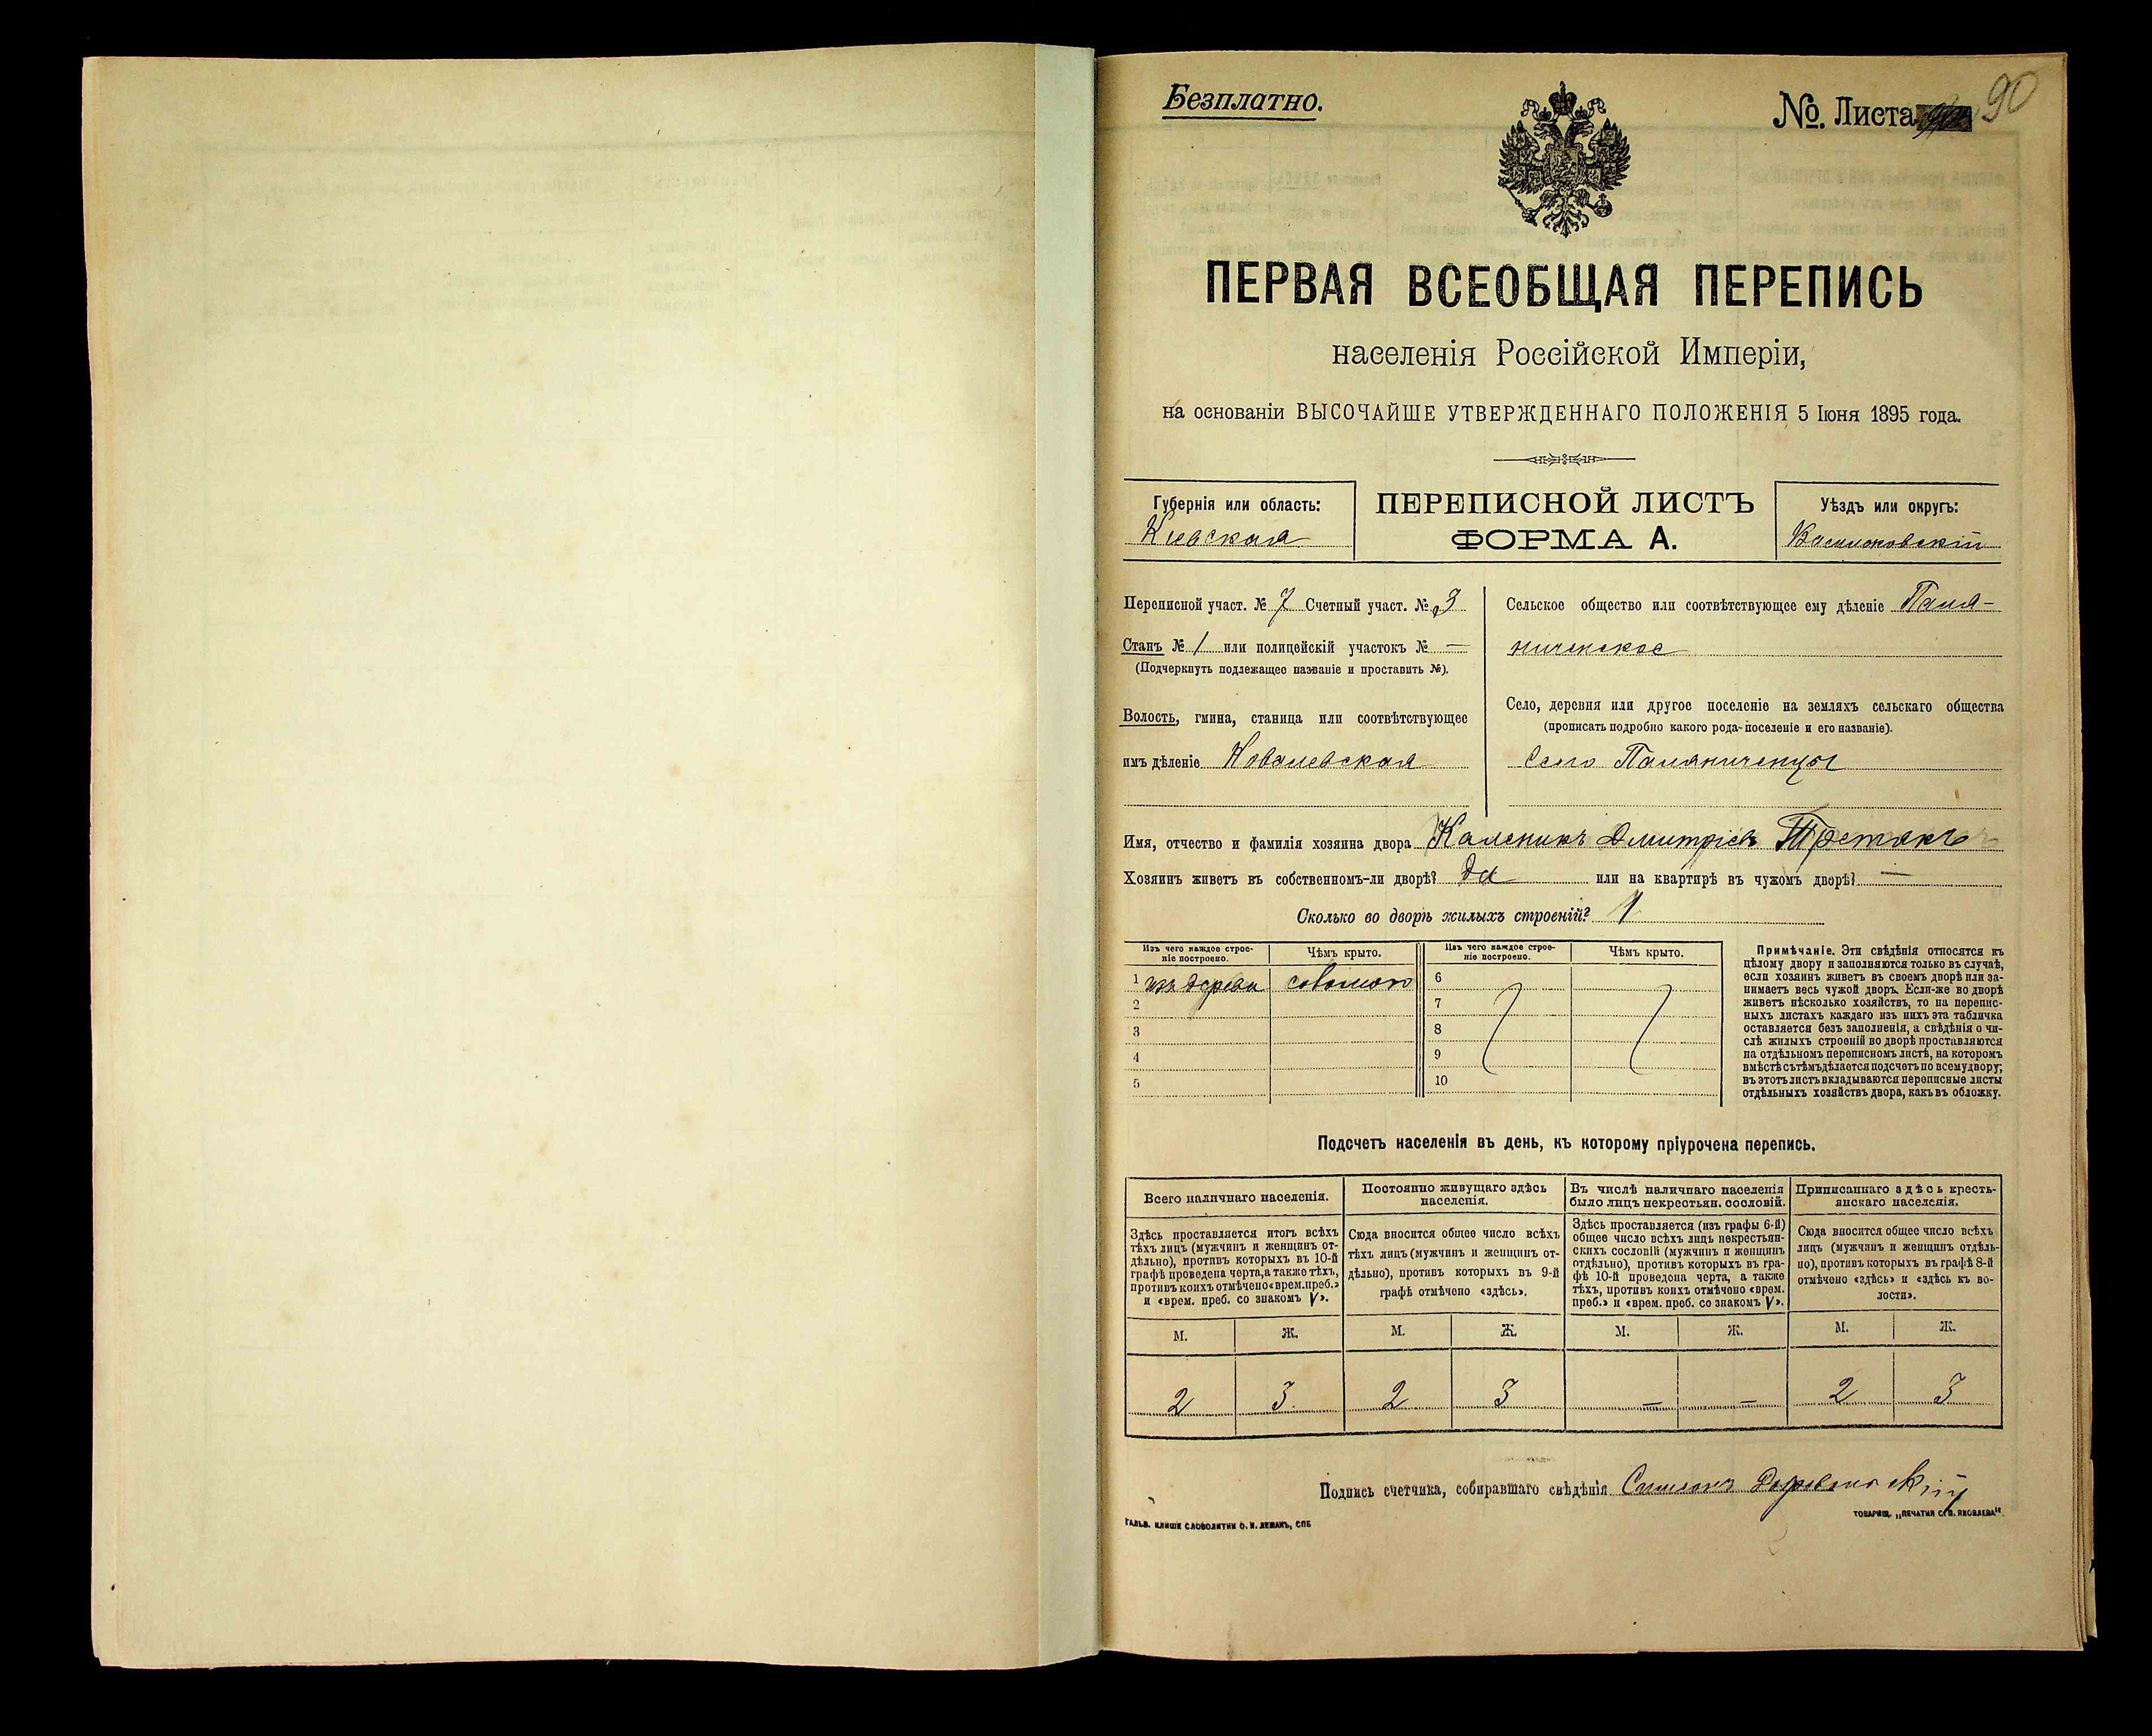 Безплатно.
№. Листа 90
ПЕРВАЯ ВСЕОБЩАЯ ПЕРЕПИСЬ
населенія Россійской Имперіи,
на основаніи ВЫСОЧАЙШЕ УТВЕРЖДЕННАГО ПОЛОЖЕНІЯ 5 Іюня 1895 года.
Губернія или область:
Киевская
ПЕРЕПИСНОЙ ЛИСТЪ
ФОРМА А.
Уѣздъ или округъ:
Васильковскій
Переписной участ. № 7 Счетный участ. № 3
Станъ № 1 или полицейскій участокъ № —
(Подчеркнуть подлежащее названіе и проставить №).
Волость, гмина, станица или соотвѣтствующее
имъ дѣленіе Ковалевская
Сельское общество или соотвѣтствующее ему дѣленіе Паля-
ниченское
Село, деревня или другое поселеніе на земляхъ сельскаго общества
(прописать подробно какого рода поселеніе и его названіе).
Село Паляниченцы
Имя, отчество и фамилія хозяина двора Каленикъ Дмитріевъ Третякъ
Хозяинъ живетъ въ собственномъ-ли дворѣ? Да или на квартирѣ въ чужомъ дворѣ? —
Сколько во дворѣ жилыхъ строеній? 1
Изъ чего каждое строе-
ніе построено.
Чѣмъ крыто.
Изъ чего каждое строе-
ніе построено.
Чѣмъ крыто.
1 изъ дерева соломою 6
2 7
3 8
4 9
5 10
Примѣчаніе. Эти свѣдѣнія относятся къ
цѣлому двору и заполняются только въ случаѣ,
если хозяинъ живетъ въ своемъ дворѣ или за-
нимаетъ весь чужой дворъ. Если-же во дворѣ
живетъ нѣсколько хозяйствъ, то на перепис-
ныхъ листахъ каждаго изъ нихъ эта табличка
оставляется безъ заполненія, а свѣдѣнія о чи-
слѣ жилыхъ строеній во дворѣ проставляются
на отдѣльномъ переписномъ листѣ, на которомъ
вмѣстѣ съ тѣмъ дѣлается подсчетъ по всему двору;
въ этотъ листъ вкладываются переписные листы
отдѣльныхъ хозяйствъ двора, какъ въ обложку.
Подсчетъ населенія въ день, къ которому пріурочена перепись.
Всего наличнаго населенія.
Постоянно живущаго здѣсь
населенія.
Въ числѣ наличнаго населенія
было лицъ некрестьян. сословій.
Приписаннаго здѣсь кресть-
янскаго населенія.
Здѣсь проставляется итогъ всѣхъ
тѣхъ лицъ (мужчинъ и женщинъ от-
дѣльно), противъ которыхъ въ 10-й
графѣ проведена черта, а также тѣхъ,
противъ коихъ отмѣчено «врем. преб.»
и «врем. преб. со знакомъ V».
Сюда вносится общее число всѣхъ
тѣхъ лицъ (мужчинъ и женщинъ от-
дѣльно), противъ которыхъ въ 9-й
графѣ отмѣчено «здѣсь».
Здѣсь проставляется (изъ графы 6-й)
общее число всѣхъ лицъ некрестьян-
скихъ сословій (мужчинъ и женщинъ
отдѣльно), противъ которыхъ въ гра-
фѣ 10-й проведена черта, а также
тѣхъ, противъ коихъ отмѣчено «врем.
преб.» и «врем. преб. со знакомъ V».
Сюда вносится общее число всѣхъ
лицъ (мужчинъ и женщинъ отдѣль-
но), противъ которыхъ въ графѣ 8-й
отмѣчено «здѣсь» и «здѣсь къ во-
лости».
М. Ж. М. Ж. М. Ж. М. Ж.
2 3 2 3 — — 2 3
Подпись счетчика, собиравшаго свѣдѣнія
ГАЛЬВ. КЛИШЕ СЛОВОЛИТНИ О. И. ЛЕМАНЪ, СПБ
ТОВАРИЩ. „ПЕЧАТНЯ С. П. ЯКОВЛЕВА“.